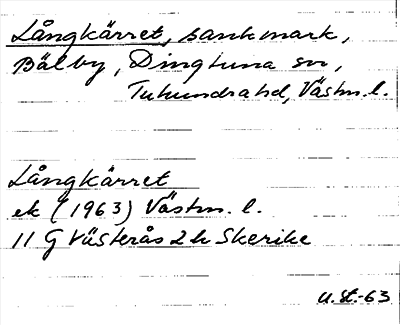 Långkärret, sankmark,
Bälby, Dingtuna sn,
Tuhundra hd, Västm. l.
Långkärret
ek (1963) Västm. l.
11 G Västerås 2 h Skerike
U.St.-63